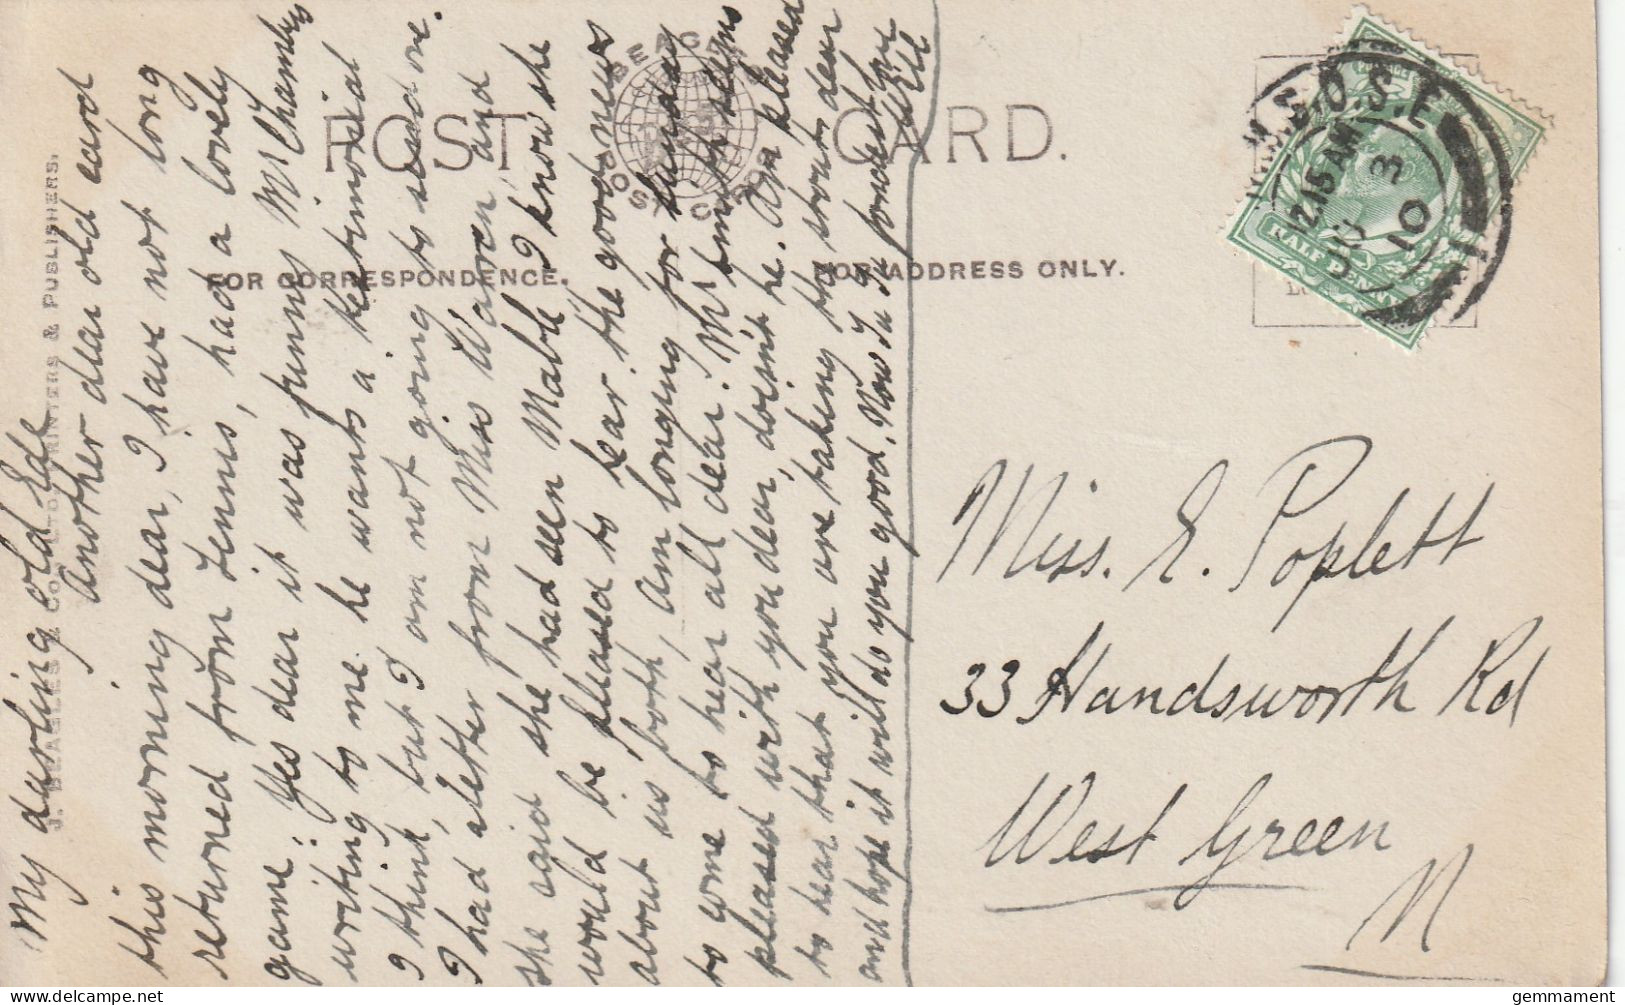 My darling old Ede
another dear old card
this morning dear, I have not long
returned from Tennis, had a lovely
game. Yes dear it was funny Mr Chambers
writing to me he wants a testimonial
I think, but I am not going to send one.
I had a letter from Miss Warren, and
she said she had seen Mabel I know she
would be pleased to hear the good news
about us both, am longing for Sunday
to come to hear all dear. Mr Smith seems
pleased with you dear, doesn't he. Am pleased
to hear that you are taking the stout dear
and hope it will do you good. Now Ta Ta fondest love
Will
POST CARD.
BEAGLES POST CARDS
FOR CORRESPONDENCE.
FOR ADDRESS ONLY.
J. BEAGLES & CO., PHOTO PRINTERS & PUBLISHERS.
S.O.S.E
12.15 AM
JU 3
10
1
POSTAGE
HALFPENNY
Miss. E. Poplett
33 Handsworth Rd
West Green
N
gemmament